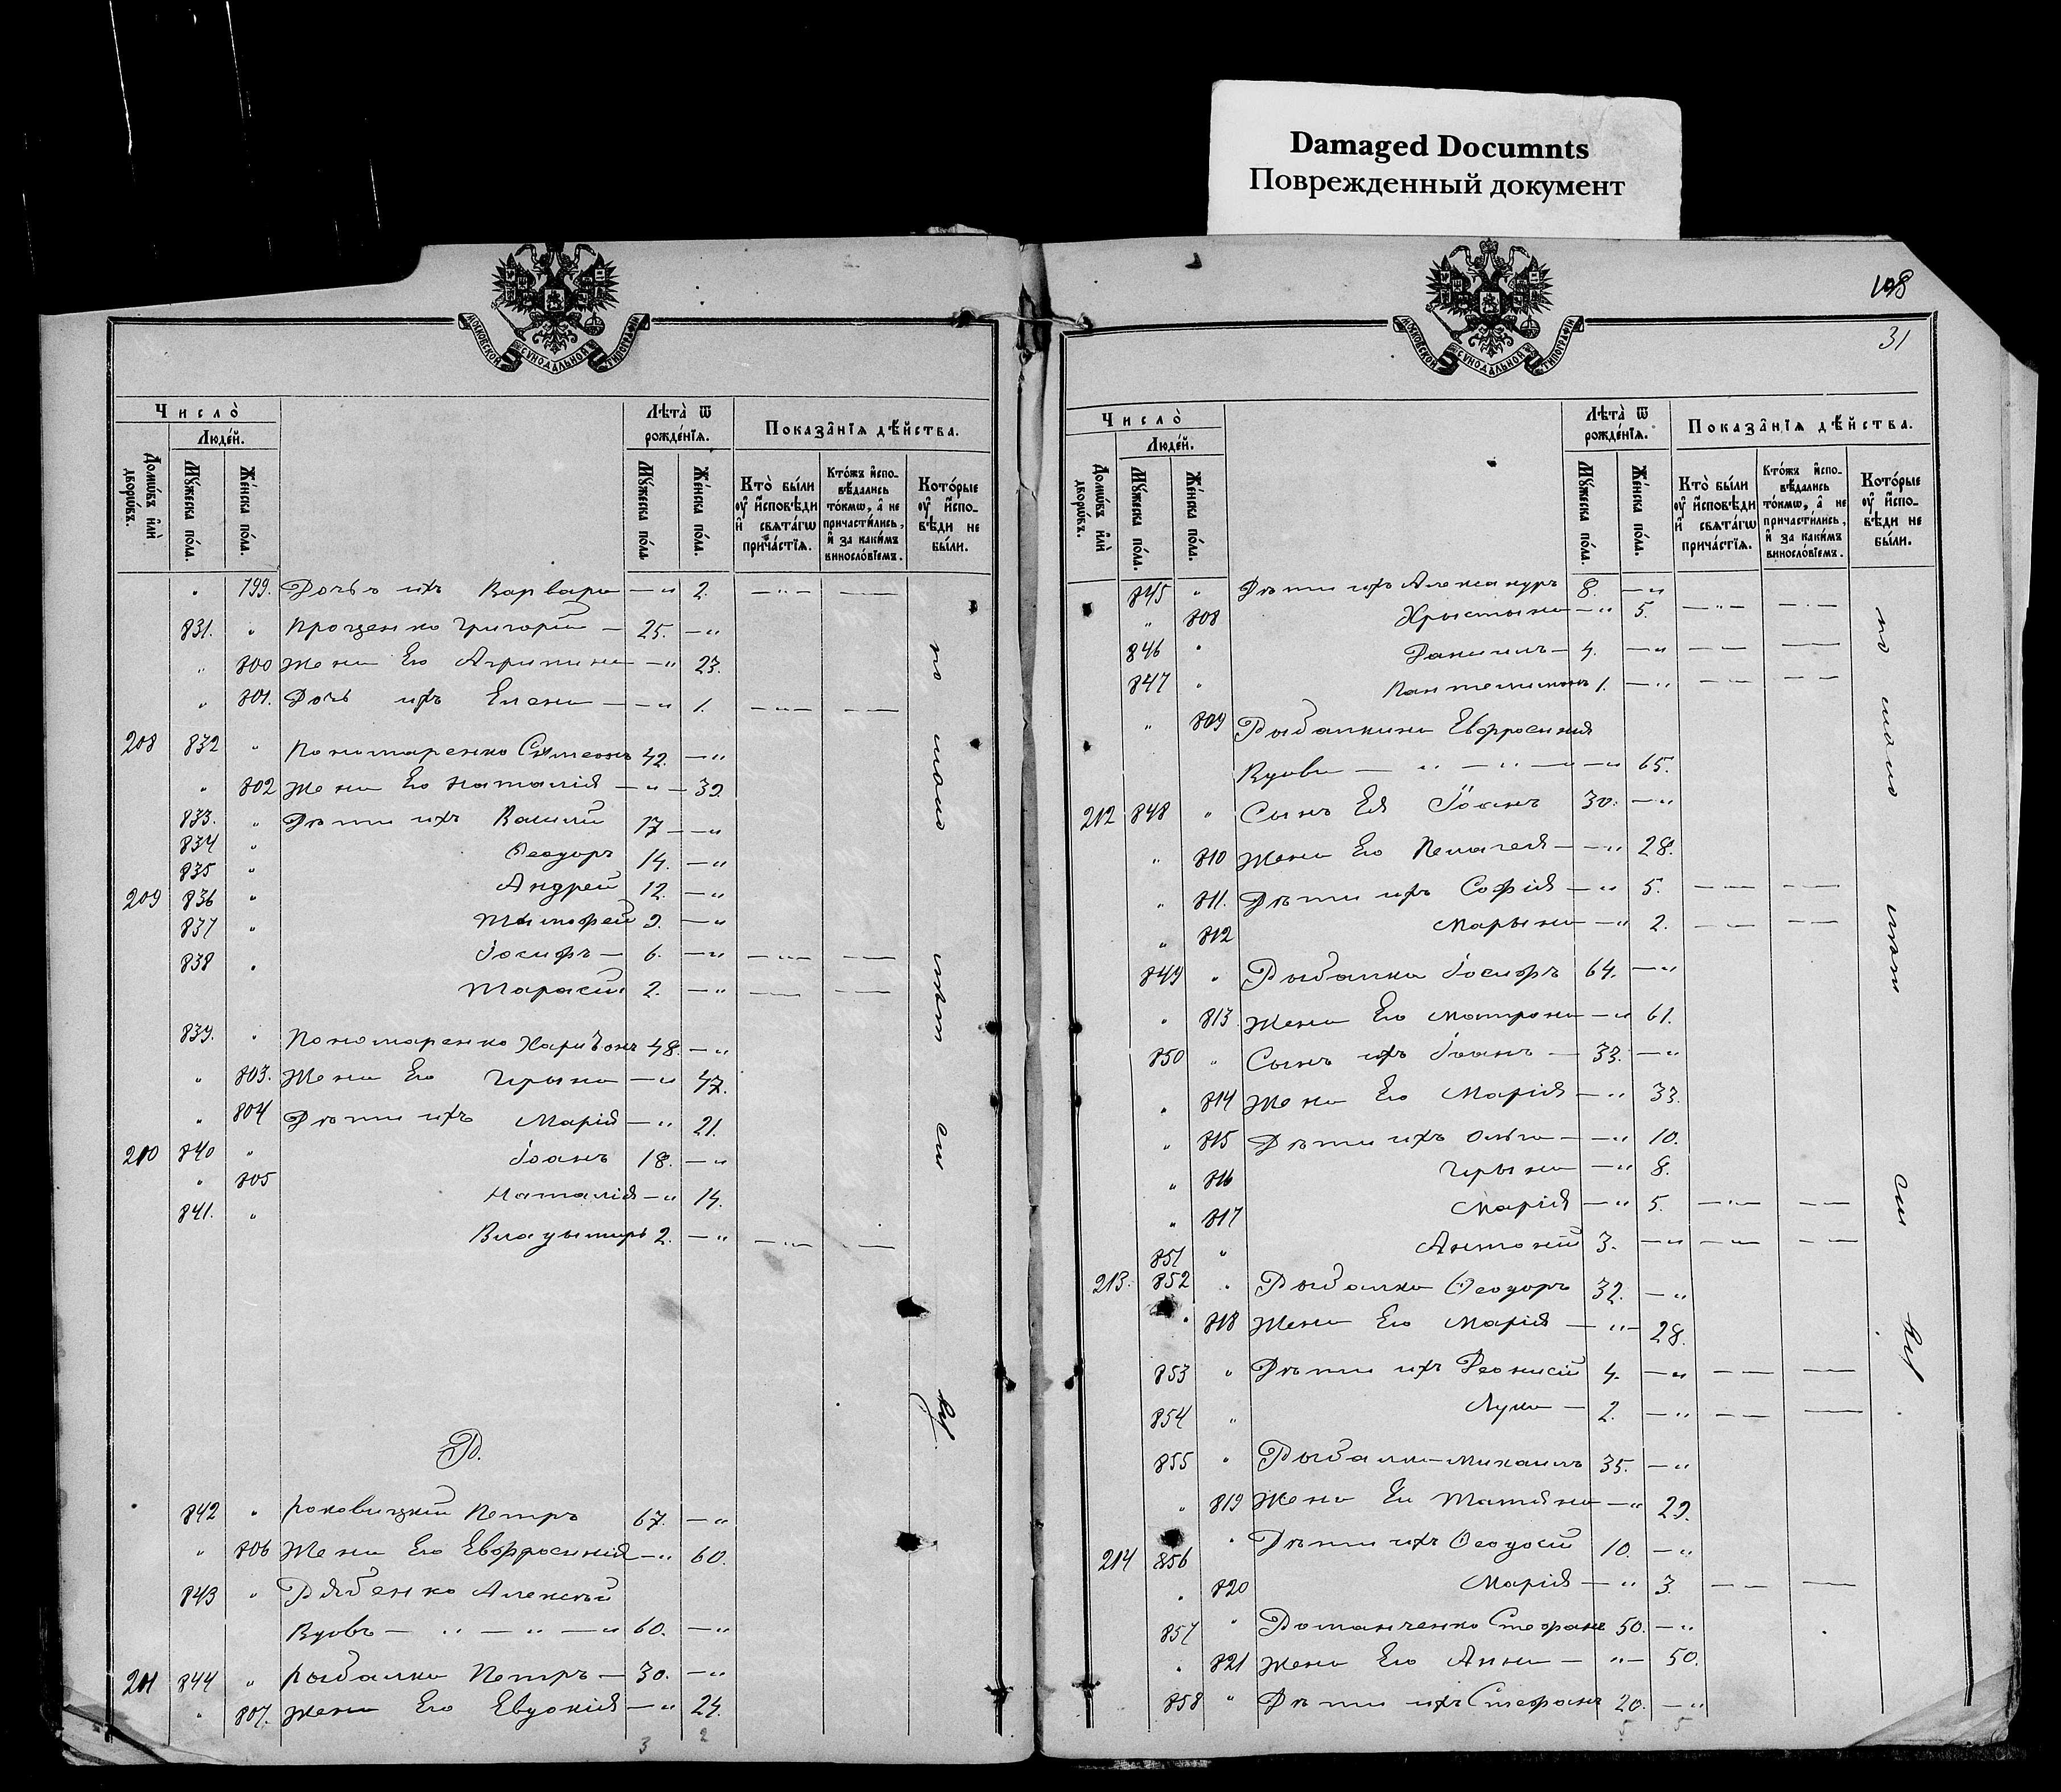 Damaged Documnts
Поврежденный документ
МОСКОВСКОЙ СѴНОДАЛЬНОЙ ТИПОГРАФІИ
Число̀
Людéй.
Домѡ́въ и҆лѝ дворѡ́въ.
Мꙋ́жеска по́ла.
Же́нска по́ла.
Лѣта̀ ѿ рожде́нїѧ.
Мꙋ́жеска по́ла.
Же́нска по́ла.
Показа̑нїѧ дѣ́йства.
Кто̀ бы́ли ᲂу҆ и҆сповѣ́ди и҆ свѧта́гѡ прича́стїѧ.
Кто́жъ и҆спо-вѣ́дались то́кмѡ, а҆ не причасти́лись, и҆ за каки́мъ винослóвїемъ.
Кото́рые ᲂу҆ и҆спо-вѣ́ди не бы́ли.
" 799. Дочь ихъ Варвара — " 2. — " — ——
831. " Проценко Григорій — 25. — "
" 800 Жена Его Агрипина — " 23.
" 801. Дочь ихъ Елена — — " 1. — " — ——
208 832 " Пономаренко Симеонъ 42. — "
" 802 Жена Его Наталія — " — 39.
833. " Дѣти ихъ Василій 17 — "
834 " Ѳеодоръ 14. — "
835 " Андрей 12. — "
209 836 " Тимофей 9. — "
837 " Іосифъ — 6. — " — " — ——
838 " Тарасій 2. — " —— ——
839. " Пономаренко Харитонъ 48. — "
" 803. Жена Его Ирына — " 47.
" 804 Дѣти ихъ Марія — " 21.
210 840 " Іоанъ 18. — "
" 805 Наталія — " 14.
841. " Владымиръ 2. — " — " — ——
Р.
842 " Раковицкій Петръ 67. — "
" 806 Жена Его Евфросинія — " 60.
843 " Рябенко Алексѣй
Вдовъ — " — " — " 60. — "
211 844 " Рыбалка Петръ — 30. — "
" 807. Жена Его Евдокія — " 24.
3 2
по мало
108
31
МОСКОВСКОЙ СѴНОДАЛЬНОЙ ТИПОГРАФІИ
Число̀
Людéй.
Домѡ́въ и҆лѝ дворѡ́въ.
Мꙋ́жеска по́ла.
Же́нска по́ла.
Лѣта̀ ѿ рожде́нїѧ.
Мꙋ́жеска по́ла.
Же́нска по́ла.
Показа̑нїѧ дѣ́йства.
Кто̀ бы́ли ᲂу҆ и҆сповѣ́ди и҆ свѧта́гѡ прича́стїѧ.
Кто́жъ и҆спо-вѣ́дались то́кмѡ, а҆ не причасти́лись, и҆ за каки́мъ винослóвїемъ.
Кото́рые ᲂу҆ и҆спо-вѣ́ди не бы́ли.
845 " Дѣти ихъ Александръ 8. — "
" 808 Хрыстына — " 5. — " — — " —
846 " Даниилъ — 4. — " — — ——
847 " Пантелимонъ 1. — " — " — — —
" 809 Рыбалкина Евфросинія
Вдова — " — " — " — " 65.
212 848 " Сынъ Ея Іоанъ 30. — "
" 810 Жена Его Пелагея — — " 28.
" 811. Дѣти ихъ Софія — " 5. — — — —
" 812 Марына — " 2. — — — —
849 " Рыбалка Іосифъ 64. — "
" 813 Жена Его Матрона — " 61.
850 " Сынъ ихъ Іоанъ — 33. — "
" 814 Жена Его Марія — " 33.
" 815 Дѣти ихъ Ольга — — " 10.
" 816 Ирына — " 8.
" 817 Марія — " 5. — " — — —
851 " Антоній 3. — " — — — —
213. 852 " Рыбалка Ѳеодоръ 32. — "
" 818 Жена Его Марія — " — 28.
853 " Дѣти ихъ Деонисій 4. — " — — ——
854 " Лука — 2. — " — — ——
855 " Рыбалка Михаилъ 35. — "
" 819 Жена Ея Татіяна — " 29.
214 856 " Дѣти ихъ Ѳеодосій 10. — "
" 820 Марія — " 3. — — ——
857 " Романченко Стефанъ 50. — "
" 821 Жена Его Анна — " — 50.
858 " Дѣти ихъ Стефанъ 20. — "
5 5
по мало